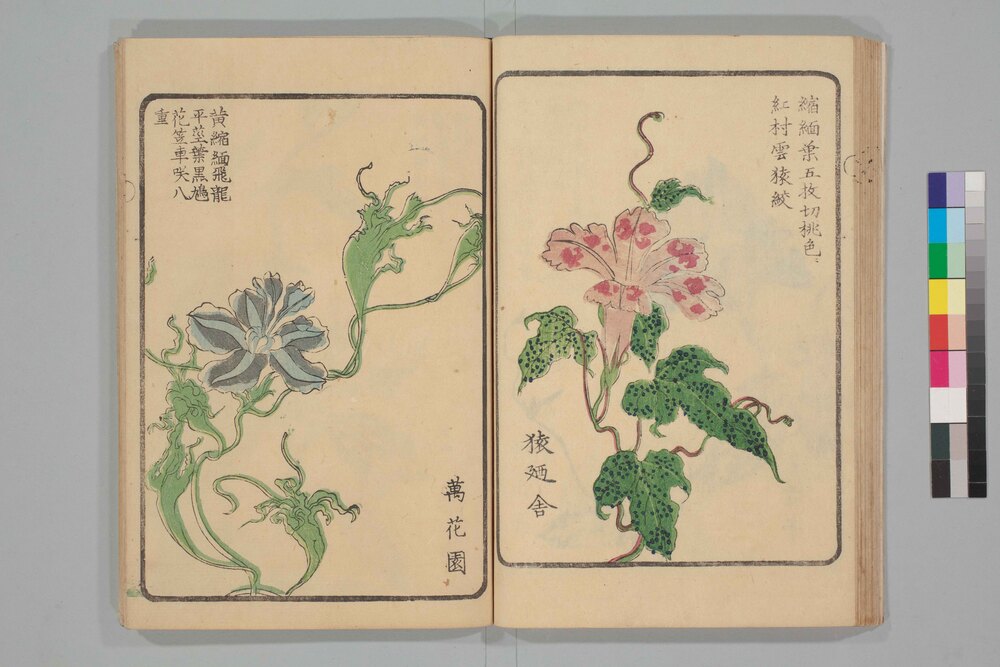 縮緬葉五枚切桃色
紅村雲猿絞
猿廼舎
黄縮緬飛龍
平莖葉黒鳩
花笠車咲八
重
萬花園